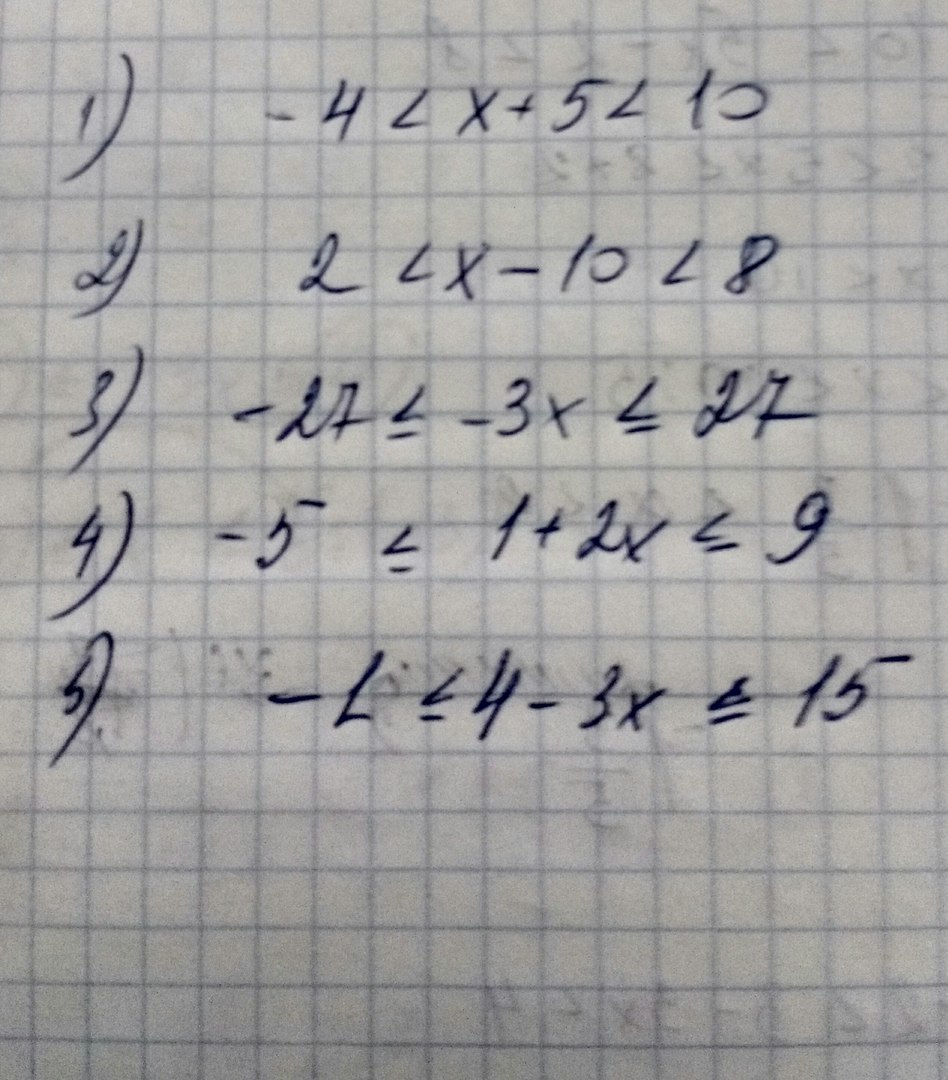 1) -4 < x + 5 < 10
2) 2 < x - 10 < 8
3) -27 ≤ -3x ≤ 27
4) -5 ≤ 1 + 2x ≤ 9
5) -1 ≤ 4 - 3x ≤ 15